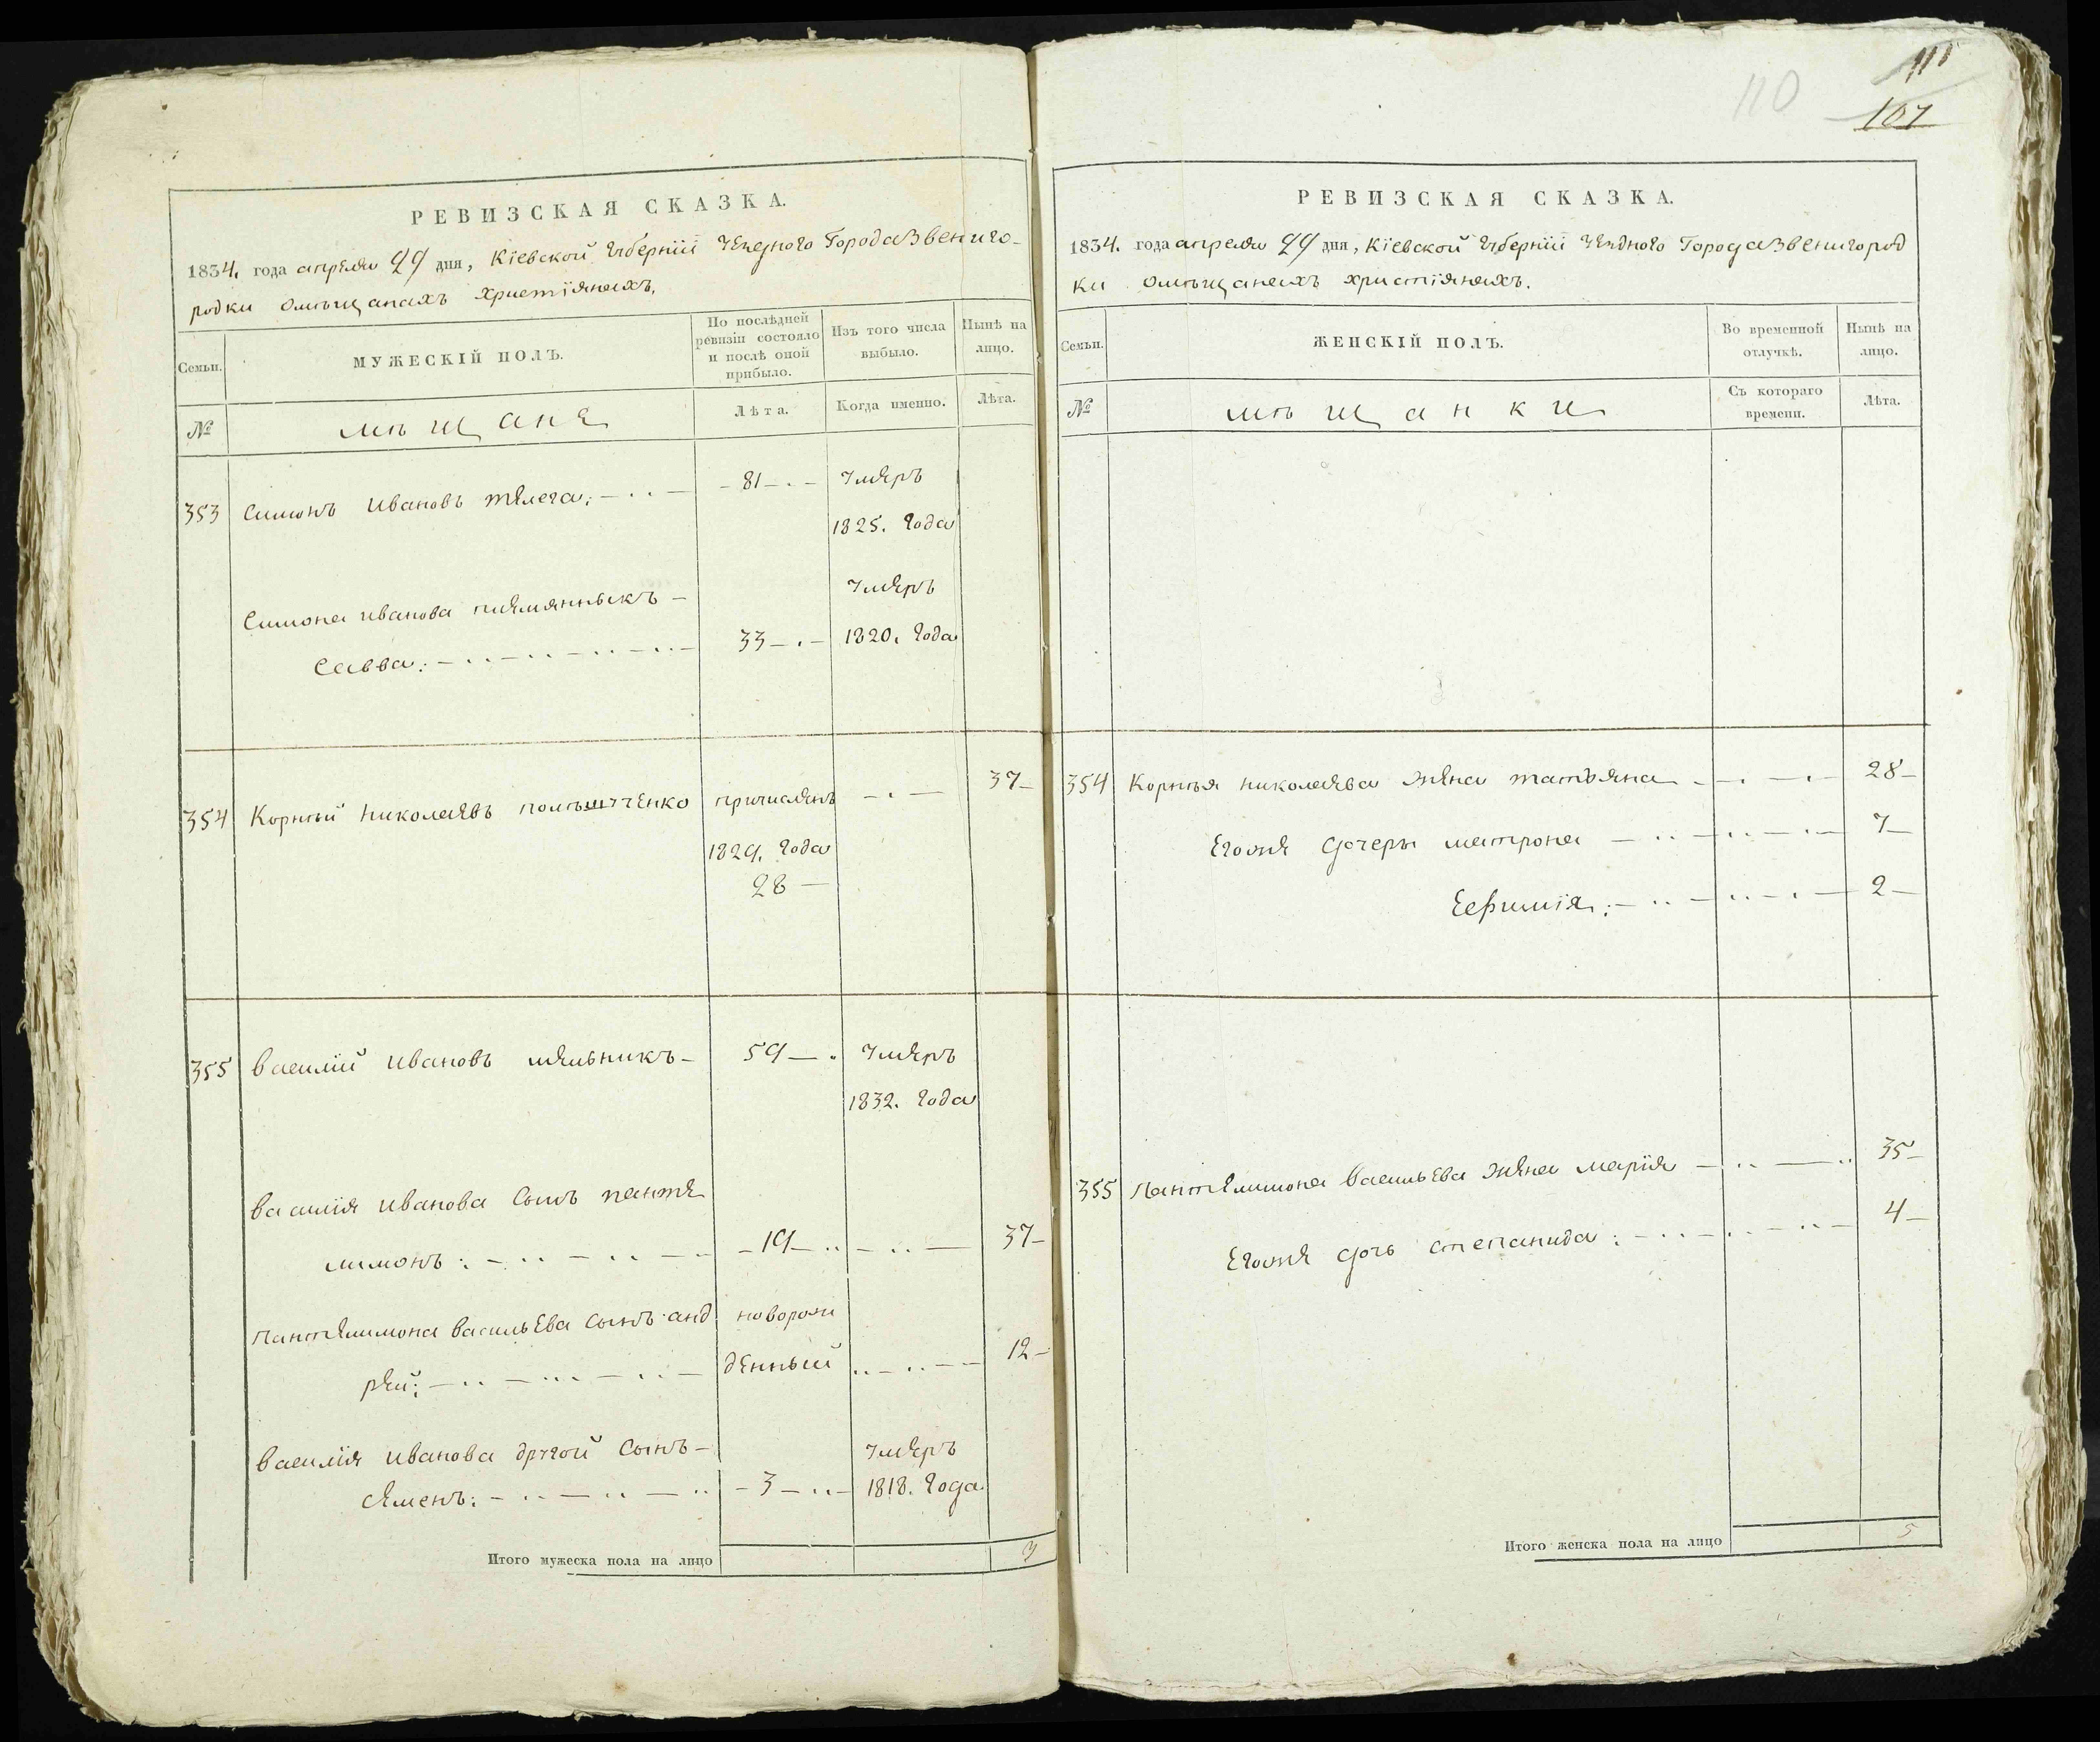 РЕВИЗСКАЯ СКАЗКА.
1834. года апреля 29 дня, Кіевской губерніи уезднаго города Звениго-
родки о мѣщанахъ христіянахъ.
Семьи.
МУЖЕСКІЙ ПОЛЪ.
По послѣдней ревизіи состояло и послѣ оной прибыло.
Изъ того числа выбыло.
Нынѣ на лицо.
№
мѣщане
Лѣта.
Когда именно.
Лѣта.
353 Симонъ Ивановъ телега: 81 умеръ
1825. года
Симона Иванова племянныкъ умеръ
Савва: 33 1820. года
354 Корнѣй Николаевъ причисленъ 37
1829. года
28
355 Василій Ивановъ мельникъ 59 умеръ
1832. года
Василія Иванова сынъ панте
лимонъ: 19 37
Пантелимона Васильева сынъ анд новорож
рей: денный 12
Василія Иванова другой сынъ умеръ
Семенъ: 3 1818. года
Итого мужеска пола на лицо 3
110
111
107
РЕВИЗСКАЯ СКАЗКА.
1834. года апреля 29 дня, Кіевской губерніи уезднаго города Звенигород
ки о мѣщанахъ христіянахъ.
Семьи.
ЖЕНСКІЙ ПОЛЪ.
Во временной отлучкѣ.
Нынѣ на лицо.
№
мѣщанки
Съ котораго времени.
Лѣта.
354 Корнѣя Николаева жена татьяна 28
Егоже дочеры матрона 7
Ефимія: 2
355 Пантелимона Васильева жена марія 35
Егоже дочь степанида: 4
Итого женска пола на лицо 5